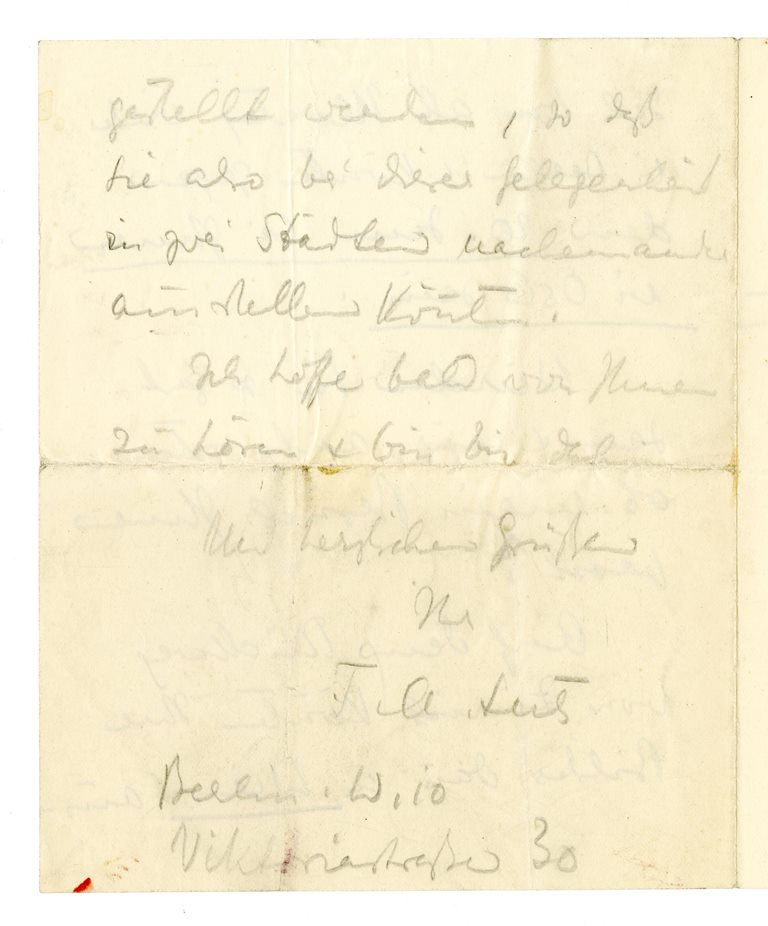 gestellt werden, so daß
sie also bei dieser Gelegenheit
in zwei Städten nacheinander
ausstellen könnten.
Ich hoffe bald von Ihnen
zu hören & bin bis dahin
Mit herzlichen Grüßen
Ihr
F. A. Lutz
Berlin. W. 10
Viktoriastraße 30